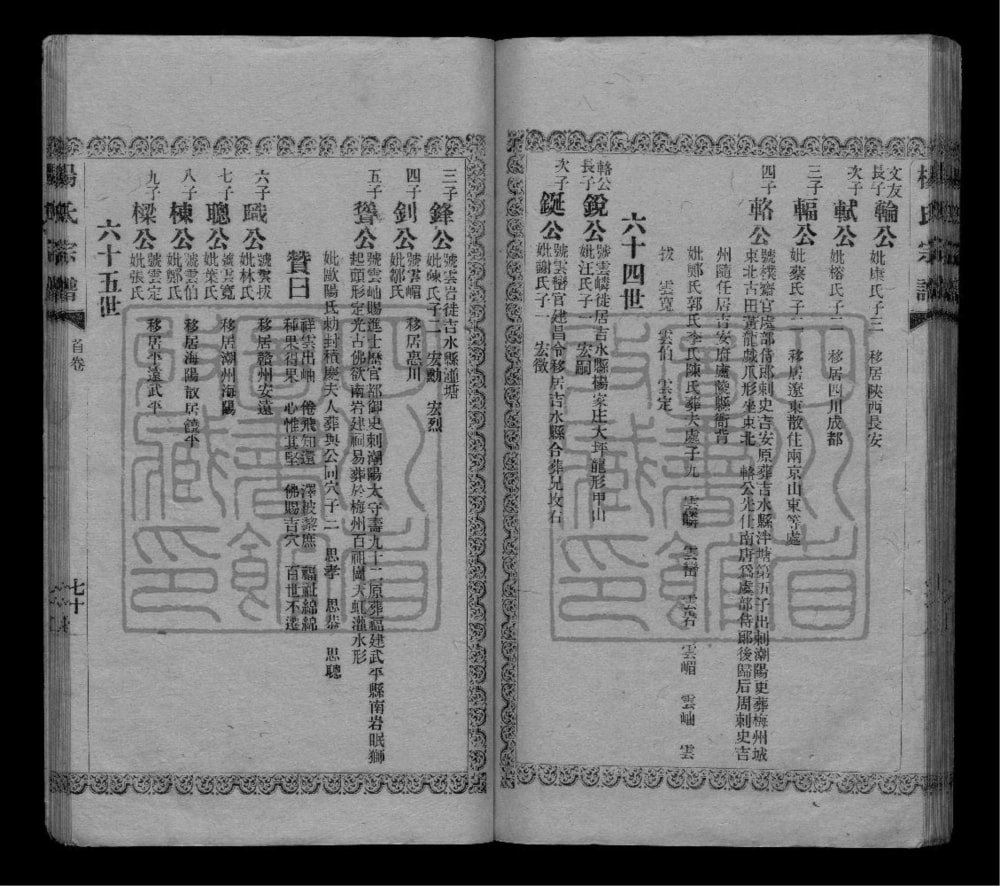 文友長子 輪公 妣康氏子三 移居陝西長安
次子 軾公 妣榕氏子二 移居四川成都
三子 輻公 妣蔡氏子二 移居遼東散住兩京山東等處
四子 輅公 號樸齋官虞部侍郎刺史吉安原葬吉水縣泮塘第五子出刺潮陽更葬梅州城
東北古田黃龍戲爪形坐東北 輅公先仕南唐爲虞部侍郞後歸后周刺史吉
州隨任居吉安府廬陵縣衙背
妣鄭氏郭氏李氏陳氏葬夫處子九 雲嶙 雲巒 雲岩 雲嵋 雲岫 雲
拔 雲寬 雲伯 雲定
六十四世
輅公長子 銳公 號雲嶙徙居吉水縣楊家庄大坪龍形甲山
妣汪氏子一 宏嗣
次子 鋌公 號雲巒官建昌令移居吉水縣合葬兄坟右
妣謝氏子一 宏徵
三子 鋒公 號雲岩徙吉水縣湴塘
妣陳氏子二 宏勳 宏烈
四子 釗公 號雲嵋 移居惠川
妣鄒氏
五子 聳公 號雲岫賜進士歷官部御史刺潮陽太守壽九十二原葬福建武平縣南岩眠獅
起頭形定光古佛欲南岩建祠易葬於梅州百祖國大虹灆水形
妣歐陽氏勅封積慶夫人葬與公同穴子三 思孝 思恭 思聰
贊曰 祥雲出岫 倦飛知還 澤被黎庶 福祉綿綿
種果得果 心惟其堅 佛賜吉穴 百世不遷
六子 職公 號雲拔 移居贛州安遠
妣林氏
七子 聰公 號雲寬 移居潮州海陽
妣葉氏
八子 棟公 號雲伯 移居海陽散居饒平
妣鄭氏
九子 樑公 號雲定 移居平遠武平
妣張氏
六十五世
楊氏宗譜
首卷
七十